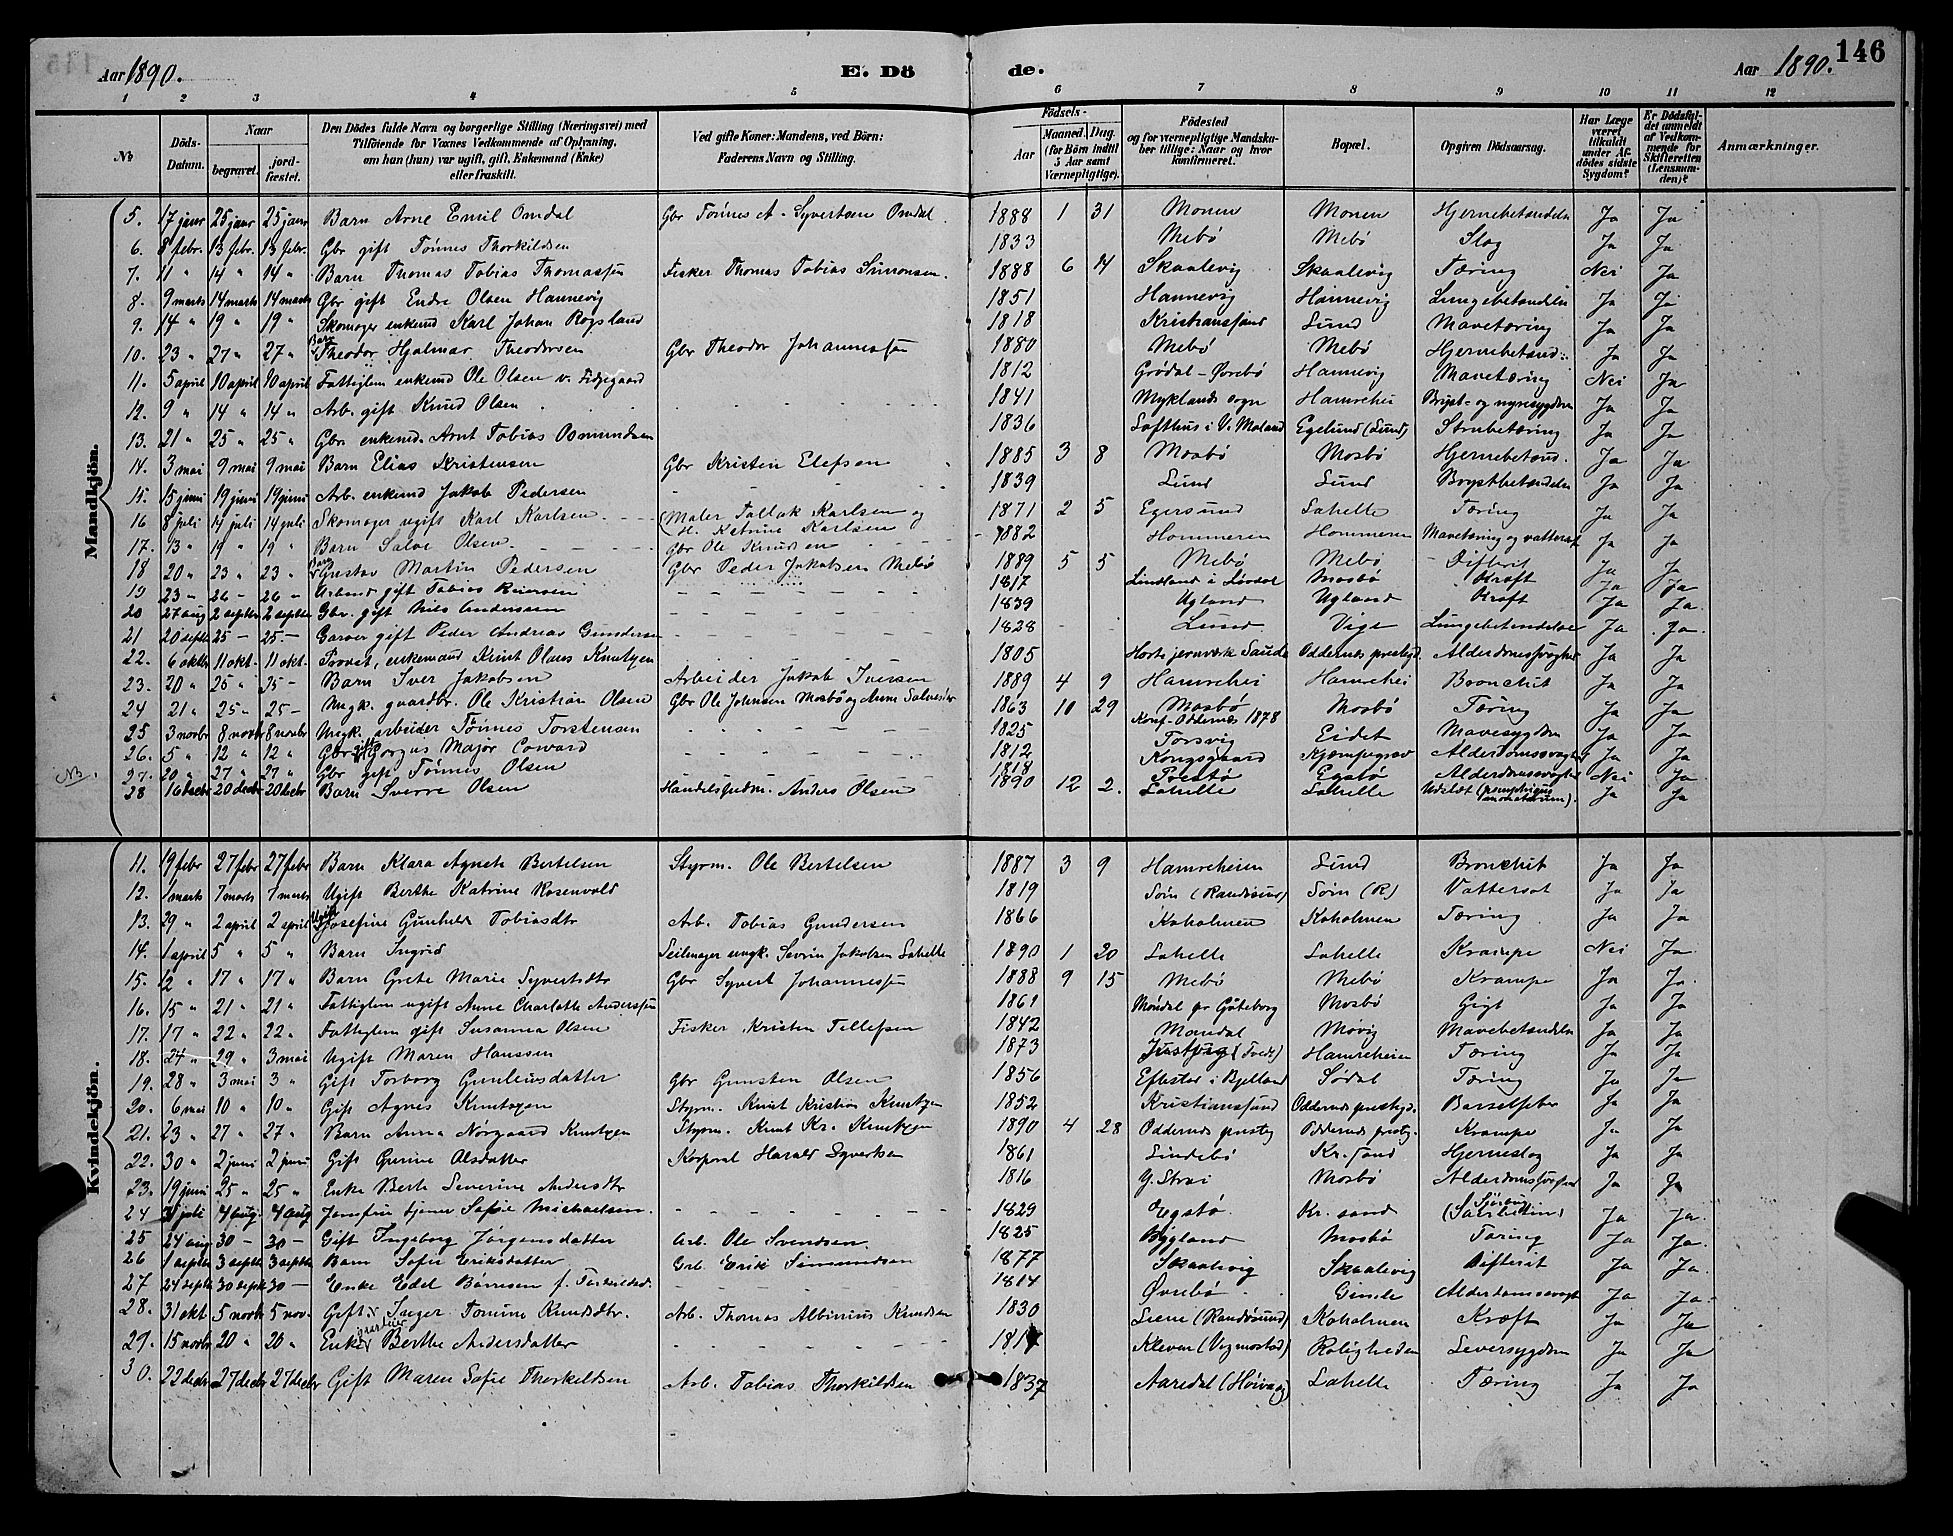 146
Aar 1890. E. Dö de. Aar 1890.
1 2 3 4 5 6 7 8 9 10 11 12
No Döds-Datum. Naar begravet. jordfæstet. Den Dödes fulde Navn og borgerlige Stilling (Næringsvei) med Tilföiende for Voxnes Vedkommende af Oplysning, om han (hun) var ugift, gift, Enkemand (Enke) eller fraskilt. Ved gifte Koner: Mandens, ved Börn: Faderens Navn og Stilling. Födsels- Aar Maaned. Dag. (for Börn indtil 5 Aar samt Værnepligtige). Födested og for værnepligtige Mandskaber tillige: Naar og hvor konfirmeret. Bopæl. Opgiven Dödsaarsag. Har Læge været tilkaldt under Afdödes sidste Sygdom? Er Dödsfaldet anmeldt af Vedkommende for Skifteretten (Lensmanden)? Anmærkninger.
Mandkjön.
5. 17 janr 25 janr 25 janr Barn Arne Emil Omdal Gbr Tönnes A. Syvertsen Omdal 1888 1 31 Monen Monen Hjernebetændelse Ja Ja
6. 8 febr. 13 febr. 13 febr. Gbr gift Tönnes Thorkildsen 1833 Mebö Mebö Slag Ja Ja
7. 11 " 14 " 14 " Barn Thomas Tobias Thomassen Fisker Thomas Tobias Simonsen 1888 6 14 Skaalevig Skaalevig Tæring Nei Ja
8. 9 marts 14 marts 14 marts Gbr gift Endre Olsen Hannevig 1851 Hannevig Hannevig Lungebetændelse Ja Ja
9. 14 " 19 " 19 " Skomager enkemd Karl Johan Rogsland 1818 Kristiansand Lund Mavetæring Ja Ja
10. 23 " 27 " 27 " Barn Theodor Hjalmar Theodorsen Gbr Theodor Johannessen 1880 Mebö Mebö Hjernebetænd. Ja Ja
11. 5 april 10 april 10 april Fattiglem enkemd Ole Olsen v. Fidjegaard 1812 Grödal - Övrebö Hannevig Mavetæring Nei Ja
12. 9 " 14 " 14 " Arb. gift Knud Olsen 1841 Myklands sogn Hamrehei Bryst- og nyresygdom Ja Ja
13. 21 " 25 " 25 " Gbr enkemd. Arnt Tobias Osmundsen 1836 Lofthus i V. Moland Egelund (Lund) Strubetæring Ja Ja
14. 3 mai 9 mai 9 mai Barn Elias Kristensen Gbr Kristen Elefsen 1885 3 8 Mosbö Mosbö Hjernebetænd. Ja Ja
15. 15 juni 19 juni 19 juni Arb. enkemd Jakob Pedersen 1839 Lund Lund Brystbetændelse Ja Ja
16 8 juli 14 juli 14 juli Skomager ugift Karl Karlsen (Maler Tallak Karlsen og H. Katrine Karlsen 1871 2 5 Egersund Lahelle Tæring Ja Ja
17. 13 " 19 " 19 " Barn Salve Olsen Gbr Ole Knudsen 1882 Hommeren Hommeren Mavetæring og vattersot Ja Ja
18 20 " 23 " 23 " Barn Gustav Martin Pedersen Gbr Peder Jakobsen Mebö 1889 5 5 Mebö Mebö Difterit Ja Ja
19 23 " 26 " 26 " Arbmd gift Tobias Reiersen 1817 Lindland i Lövdal Mosbö Kræft Ja Ja
20 27 aug 2 septbr 2 septbr Gbr. gift Nils Andersen 1839 Ugland Ugland Kræft Ja Ja.
21 20 septbr 25 - 25 - Garver gift Peder Andreas Gundersen 1828 Lund Vige Lungebetændelse Ja Ja.
22. 6 oktbr 11 okt. 11 okt. Provst, enkemand Knut Olaus Knutzen 1805 Holts jernværk Saude Oddernes prestgd. Alderdomssvaghed Ja Ja
23. 20 " 25 " 25 - Barn Iver Jakobsen Arbeider Jakob Iversen 1889 4 9 Hamrehei Hamrehei Bronchit Ja Ja
24 21 " 25 - 25 - Ungk. gaardbr. Ole Kristian Olsen Gbr Ole Johnsen Mosbö og Anne Salvesdtr 1863 10 29 Mosbö Konf. Oddernes 1878 Mosbö Tæring Ja Ja
25 3 novbr 8 novbr 8 novbr Ungk. arbeider Tönnes Torstensen 1825 Torsvig Eidet Mavesygdom Ja Ja
26. 5 " 12 " 12 " Gbr gift Jørgus Major Coward 1812 Kongsgaard Kjempegrav Alderdomssvaghed Ja Ja
NB. 27. 20 " 27 " 27 " Gbr gift Tönnes Olsen 1818 Prestö Egsbö Alderdomssvaghed Nei Ja
28 16 decbr 20 decbr 20 decbr Barn Sverre Olsen Handelsfuldm. Anders Olsen 1890 12 2. Lahelle Lahelle Udslæt (pemphigus neonatorum). Ja Ja
Kvindekjön.
11. 19 febr 27 febr 27 febr Barn Klara Agnete Bertelsen Styrm. Ole Bertelsen 1887 3 9 Hamreheien Lund Bronchit Ja Ja
12. 1 marts 7 marts 7 marts Ugift Berthe Katrine Rosenvold 1819 Söm (Randösund) Söm (R) Vattersot Ja Ja
13. 29 " 2 april 2 april Ugift Josefine Gunhild Tobiasdtr Arb. Tobias Gundersen 1866 Koholmen Koholmen Tæring Ja Ja
14. 1 april 5 " 5 " Barn Ingrid Seilmager ungk. Severin Jakobsen Lahelle 1890 1 20 Lahelle Lahelle Krampe Nei Ja
15. 12 " 17 " 17 " Barn Grete Marie Syvertsdtr Gbr Syvert Johannessen 1888 9 15 Mebö Mebö Krampe Ja Ja.
16. 15 " 21 " 21 " Fattiglem ugift Anne Charlotte Anderssen 1861 Möndal pr Göteborg Mosbö Gigt Ja Ja
17. 17 " 22 " 22 " Fattiglem gift Susanna Olsen Fisker Kristen Tellefsen 1842 Mandal Mövig Mavebetændelse Ja Ja
18. 24 " 29 " 3 mai Ugift Maren Hanssen 1873 Justvig (Tvedt) Hamreheien Tæring Ja Ja
19. 28 " 3 mai 3 " Gift Torborg Gunleusdatter Gbr Gunsten Olsen 1856 Eftestøl i Bjelland Södal Tæring Ja Ja
20. 6 mai 10 " 10 " Gift Agnes Knutzen Styrm. Knut Kristian Knutzen 1852 Kristianssand Oddernes prestgd. Barselfeber Ja Ja
21. 23 " 27 " 27 " Barn Anna Nørgaard Knutzen Styrm. Knut Kr. Knutzen 1890 4 28 Oddernes prestg Oddernes prestg. Krampe Ja Ja
22. 30 " 2 juni 2 juni Gift Gurine Alsdatter Korporal Harald Syvertsen 1861 Lindebö Kr. sand Hjerneslag Ja Ja
23. 19 juni 25 " 25 " Enke Berte Severine Andersdtr 1816 Y. Strai Mosbö Ja Ja
24 31 juli 4 aug. 4 aug Jomfru tjener Sofie Michaelsen 1829 Egsbö. Kr. sand Ja Ja.
25 24 aug 30 - 30 - Gift Ingeborg Jörgensdatter Arb. Ole Svendsen 1825 Bygland Mosbö Tæring Ja Ja.
26 1 septbr 3 septbr 3 septbr Barn Sofie Eriksdatter Arb. Erik Simundsen 1877 Skaalevig Skaalevig Difterit Ja Ja.
27 24 septbr 30 septbr 30 - Enke Edel Børresen f. Torkildsd. 1814 Övrebö Gimle Alderdomssvagh Ja Ja.
28. 31 okt 5 novbr 5 nov. Gift Inger Tomine Knudsdtr. Arb. Thomas Albinius Knudsen 1830 Liene (Randösund) Koholmen Kræft Ja Ja
29. 15 novbr 20 " 20 " Enke Berthe Andersdatter Kleven (Vegmostad) Roligheden Leversygdom Ja Ja
30. 22 decbr 27 decbr 27 decbr Gift Maren Sofie Thorkildsen Arb. Tobias Thorkildsen 1837 Aaredal (Höivaag) Lahelle Tæring Ja Ja